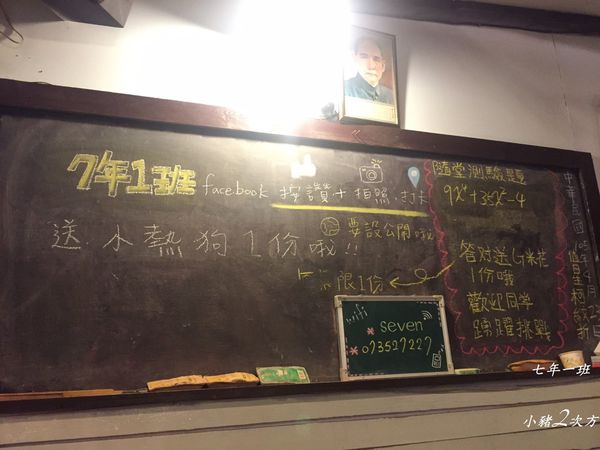 7年1班
facebook 按讚+拍照.打卡
要設公開哦
送小熱狗1份哦!!
限1份
隨堂測驗題
9x⁴+35x²-4
答对送
1份哦
歡迎同学
踴躍挑戰
中華民國
wifi
seven
073527227
七年一班
小豬2次方